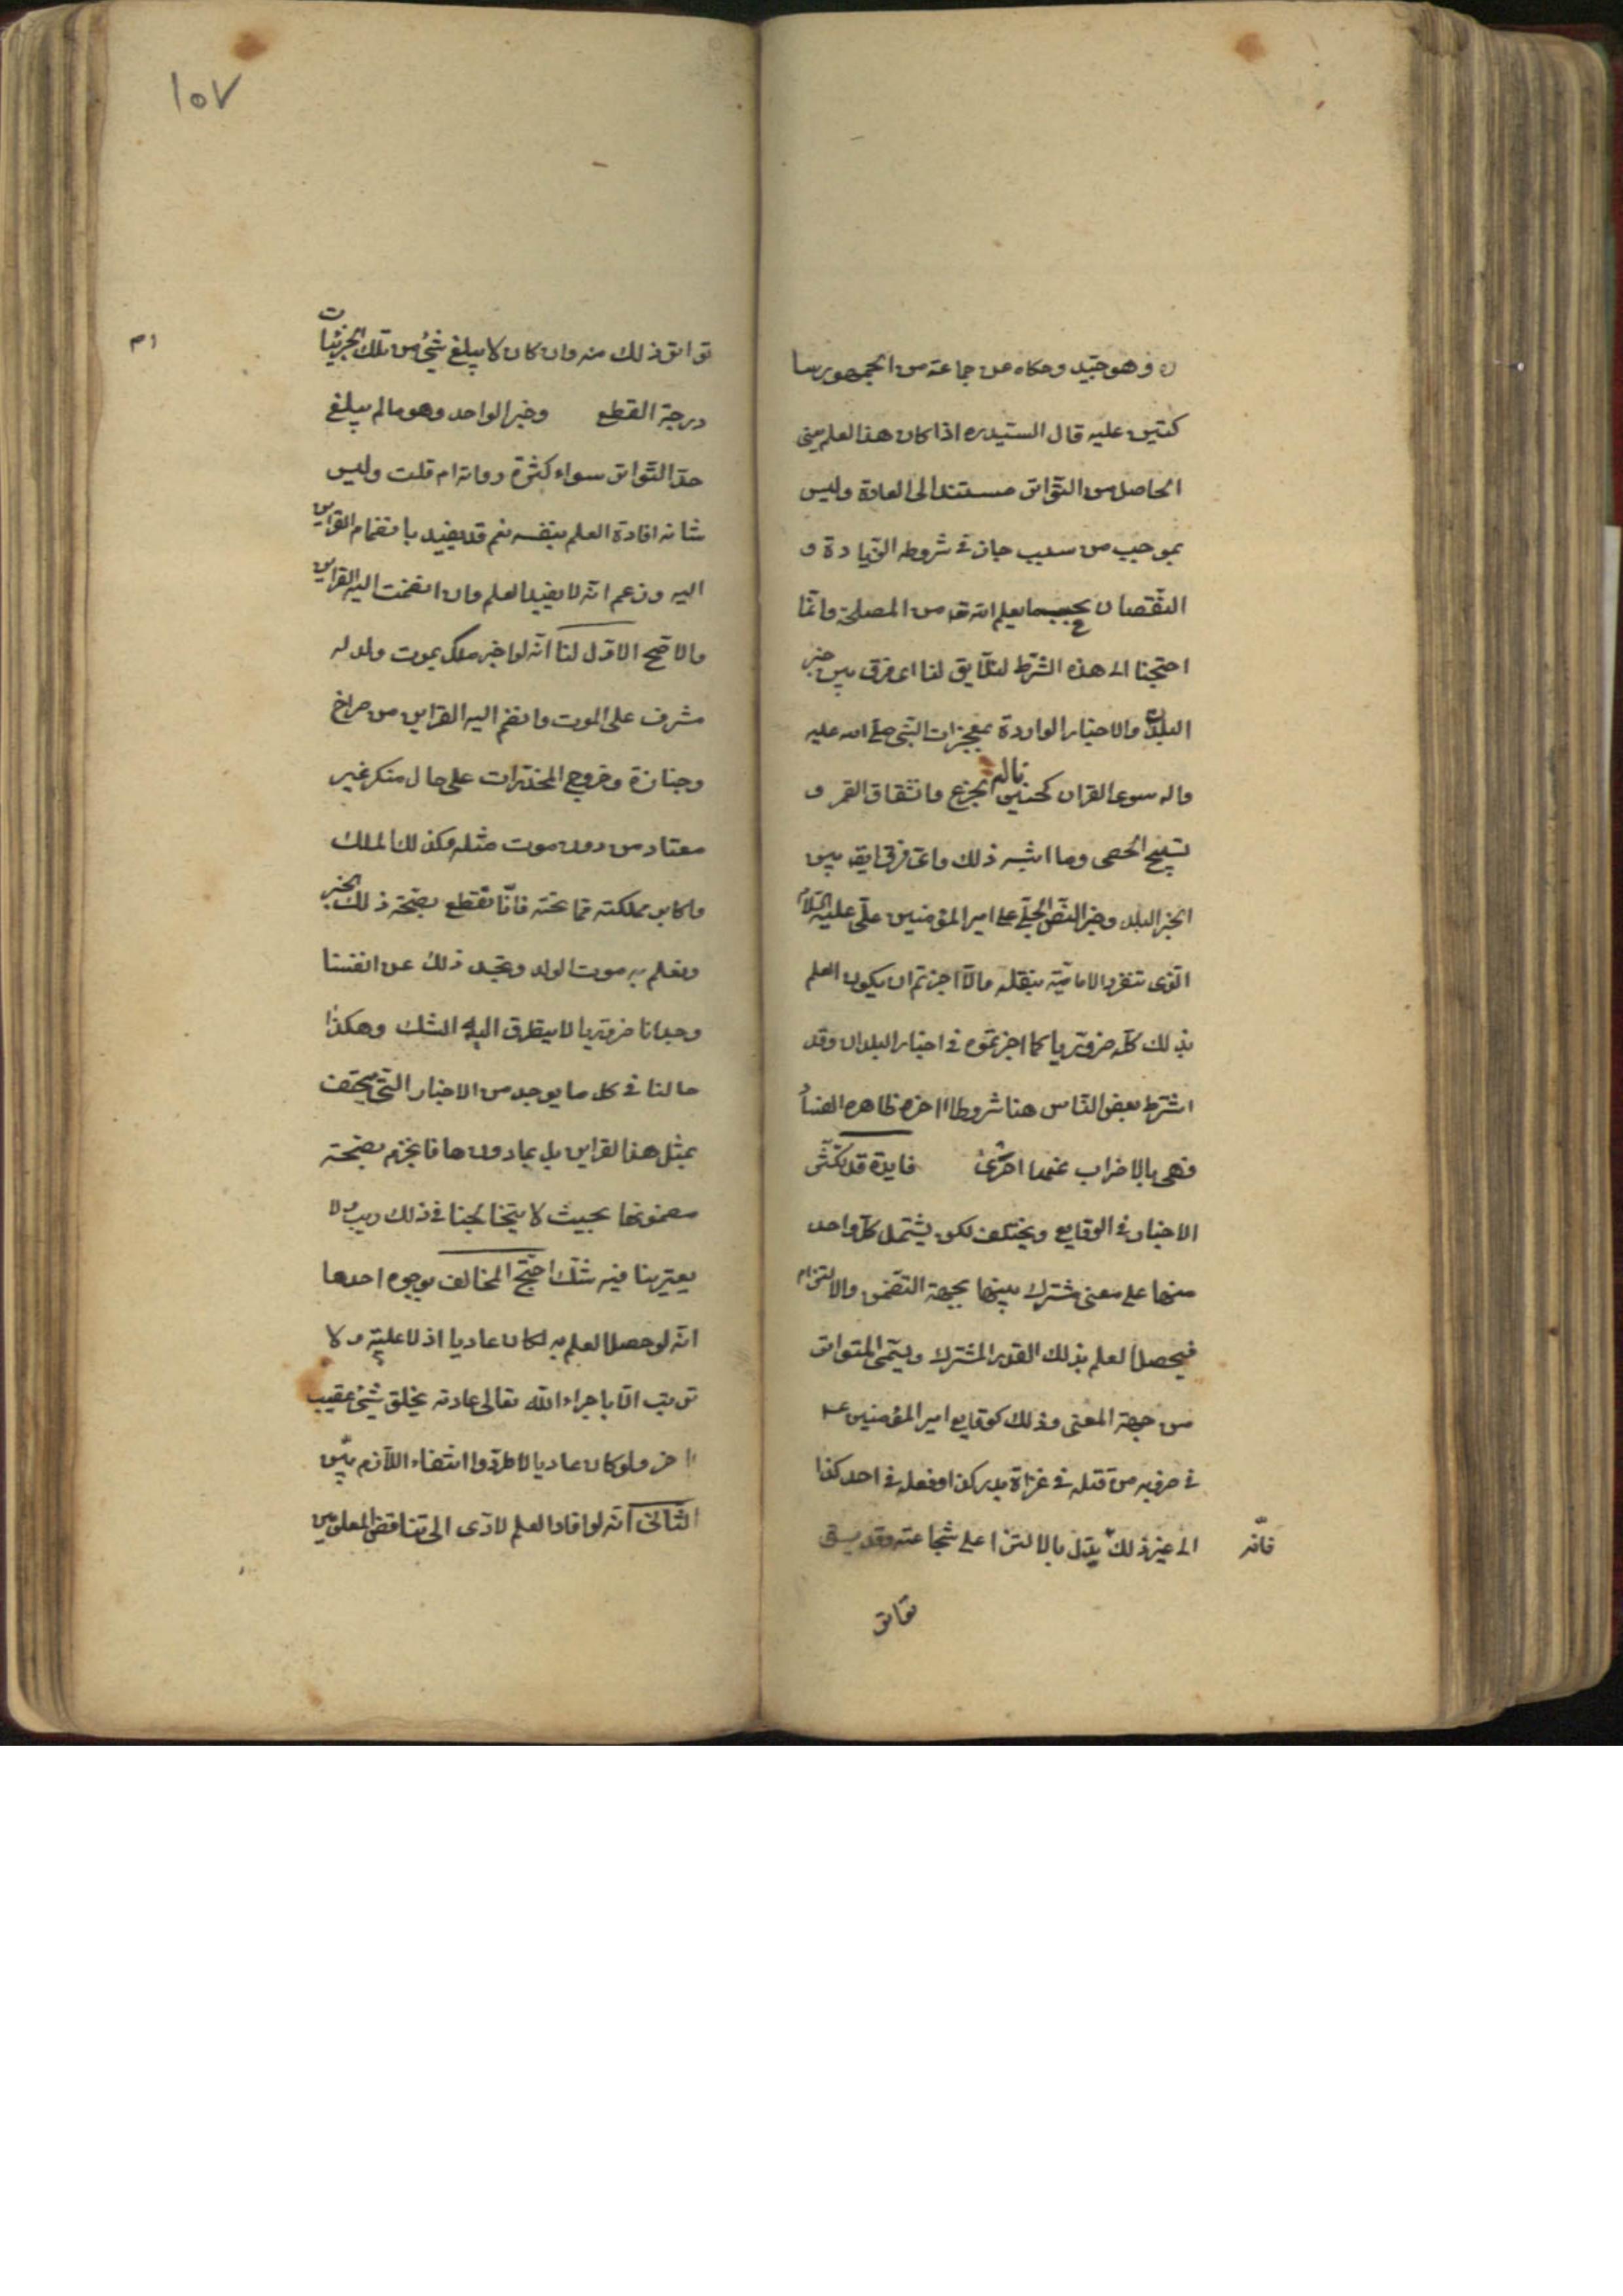 ره وهو جيّد وحكاه عن جماعة من الجمهور سا
كتين عليه قال السيّد ره اذا كان هذا العلم يعنى
الحاصل من التّواتر مستندا الى العادة وليس
بموجب من سبب جاز فى شروطه الزّيادة و
النّقصان بحسب ما يعلم الله تعـ من المصلحة وانّما
احتجنا الى هذه الشّرط لئلّا يق لنا اى فرق بين خبر
البلدان والاخبار الواردة بمعجزات النّبى صلّى الله عليه
واله سوى القران كحنين الجزع وانشقاق القمر و
تسبيح الحصى وما اشبه ذلك واىّ فرق ايضا بين
الخبر البلد وخبر النّصّ الجلّى على امير المؤمنين علّى عليه السّلام
الّذى تنفرد الاماميّة بنقله والّا اجزتم ان يكون العلم
بذلك كلّه ضروريا كما اجزتموه فى اخبار البلدان وقد
اشترط بعض النّاس هنا شروطا اخره ظاهره الفساد
فهى بالاضراب عنها احرى فايدة قد تكثّر
الاخبار فى الوقايع ويختلف لكن يشتمل كلّ واحد
منها على معنى مشترك بينها بجهة التّضمّن والالتزام
فيحصل العلم بذلك القدر المشترك ويسمّى المتواتر
من جهة المعنى وذلك كوقايع امير المؤمنين عـ
فى حروبه من قتله فى غزاة بدر كذا وفعله فى احد كذا
الى غير ذلك يدلّ بالالتزا على شجاعته وقد
فانّه
تواتر
١٥٧
تواتر ذلك منه وان كان لا يبلغ شئ من تلك الجزئيات
درجة القطع وخبر الواحد وهو مالم يبلغ
حدّ التّواتر سواء كثرة رواته ام قلت وليس
شانه افادة العلم بنفسه نعم قد يفيد بانضمام القراين
اليه وزعم انّه لا يفيد العلم وان انضمت اليه القراين
والاصّح الاوّل لنا انّه لو اخبر ملك بموت ولد له
مشرف على الموت وانضم اليه القراين من صراخ
وجنازة وخروج المخدّرات على حال منكر غير
معتاد من دون موت مثله وكذلك الملك
واكابر مملكته فما تحته فانّا نقطع بصّحة ذلك الخبر
ونعلم به موت الولد ونجد ذلك عن انفسنا
وجدانا ضروريا لا يتطرق اليه الشك وهكذا
حالنا فى كل ما يوجد من الاخبار التّى تحتف
بمثل هذا القراين بل بمادون ها فانجزم بصّحة
مضمونها بحيث لا يتخالجنا فى ذلك ريب ولا
يعترينا فيه شكّ احتّج المخالف بوجوه احدها
انّه لو حصل العلم به لكان عاديا اذ لا عليّة ولا
ترتب الّا باجراء الله تعالى عادته بخلق شئ عقيب
اخر ولو كان عاديا لاطرّدوا انتفاء اللّازم بيّن
الثّانى انّه لو افادا العلم لادّى الى تناقض المعلومين